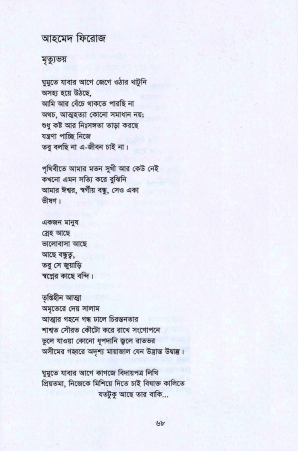 আহমেদ ফিরোজ
মৃত্যুভয়
ঘুমুতে যাবার আগে জেগে ওঠার খাটুনি
অসহ্য হয়ে উঠছে,
আমি আর বেঁচে থাকতে পারছি না
অথচ, আত্মহত্যা কোনো সমাধান নয়;
শুধু কষ্ট আর নিঃসঙ্গতা তাড়া করছে
যন্ত্রণা পাচ্ছি নিজে
তবু বলছি না এ-জীবন চাই না।
পৃথিবীতে আমার মতন সুখী আর কেউ নেই
কখনো এমন সত্যি করে বুঝিনি
আমার ঈশ্বর, স্বর্গীয় বন্ধু, সেও একা
ভীষণ।
একজন মানুষ
স্নেহ আছে
ভালোবাসা আছে
আছে বন্ধুত্ব,
তবু সে জুয়াড়ি
স্বপ্নের কাছে বন্দি।
তৃপ্তিহীন আত্মা
অমৃতেরে দেয় সালাম
আত্মার গহনে গন্ধ ঢালে চিরন্তনতার
শাশ্বত সৌরভ কৌটো করে রাখে সংগোপনে
ভুলে যাওয়া কোনো ধূপদানি জ্বলে রাতভর
অসীমের গহ্বরে অদৃশ্য মায়াজাল যেন উদ্ভ্রান্ত উষার।
ঘুমুতে যাবার আগে কাগজে বিদায়পত্র লিখি
প্রিয়তমা, নিজেকে মিশিয়ে দিতে চাই বিষাক্ত কালিতে
যতটুকু আছে তার বাকি...
৬৮